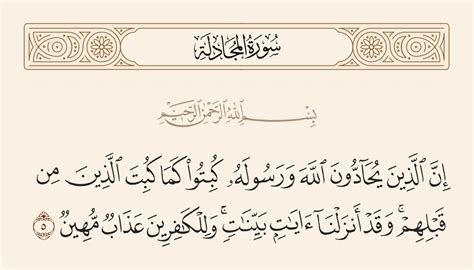 سُورَةُ المُجَادلَةِ
بِسْمِ ٱللَّهِ ٱلرَّحْمَٰنِ ٱلرَّحِيمِ
إِنَّ ٱلَّذِينَ يُحَآدُّونَ ٱللَّهَ وَرَسُولَهُۥ كُبِتُوا۟ كَمَا كُبِتَ ٱلَّذِينَ مِن
قَبْلِهِمْ ۚ وَقَدْ أَنزَلْنَآ ءَايَٰتٍۭ بَيِّنَٰتٍ ۚ وَلِلْكَٰفِرِينَ عَذَابٌ مُّهِينٌ ٥